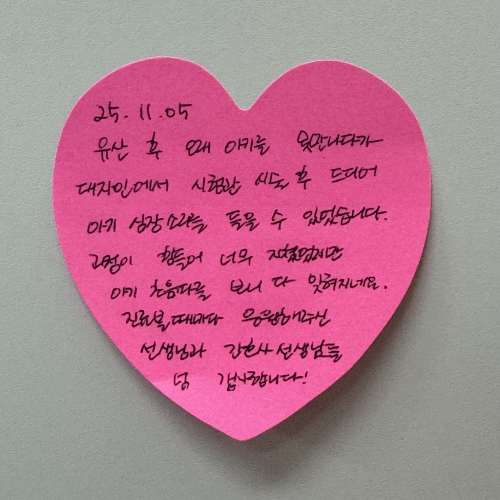 25. 11. 05
유산 후 오래 아기를 못만나다가
대자인에서 시험관 시술 후 드디어
아기 심장소리를 들을 수 있었습니다.
과정이 힘들어 너무 지쳤었지만
아기 초음파를 보니 다 잊혀지네요.
진료볼때마다 응원해주신
선생님과 간호사 선생님들
넘 감사합니다!